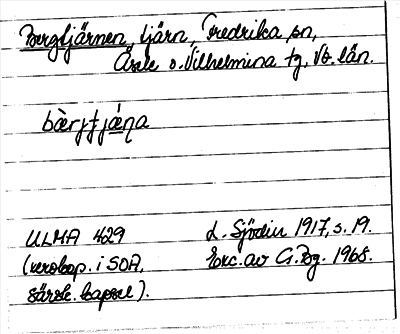 Bergtjärnen, tjärn, Fredrika sn,
Åsele o. Vilhelmina tg, Vb. län.
bærjtjæṇa
ULMA 429 L. Sjödin 1917, s. 19.
(verokap. i SOA, Exc. av G. Bg. 1968.
särsk. kapsel).